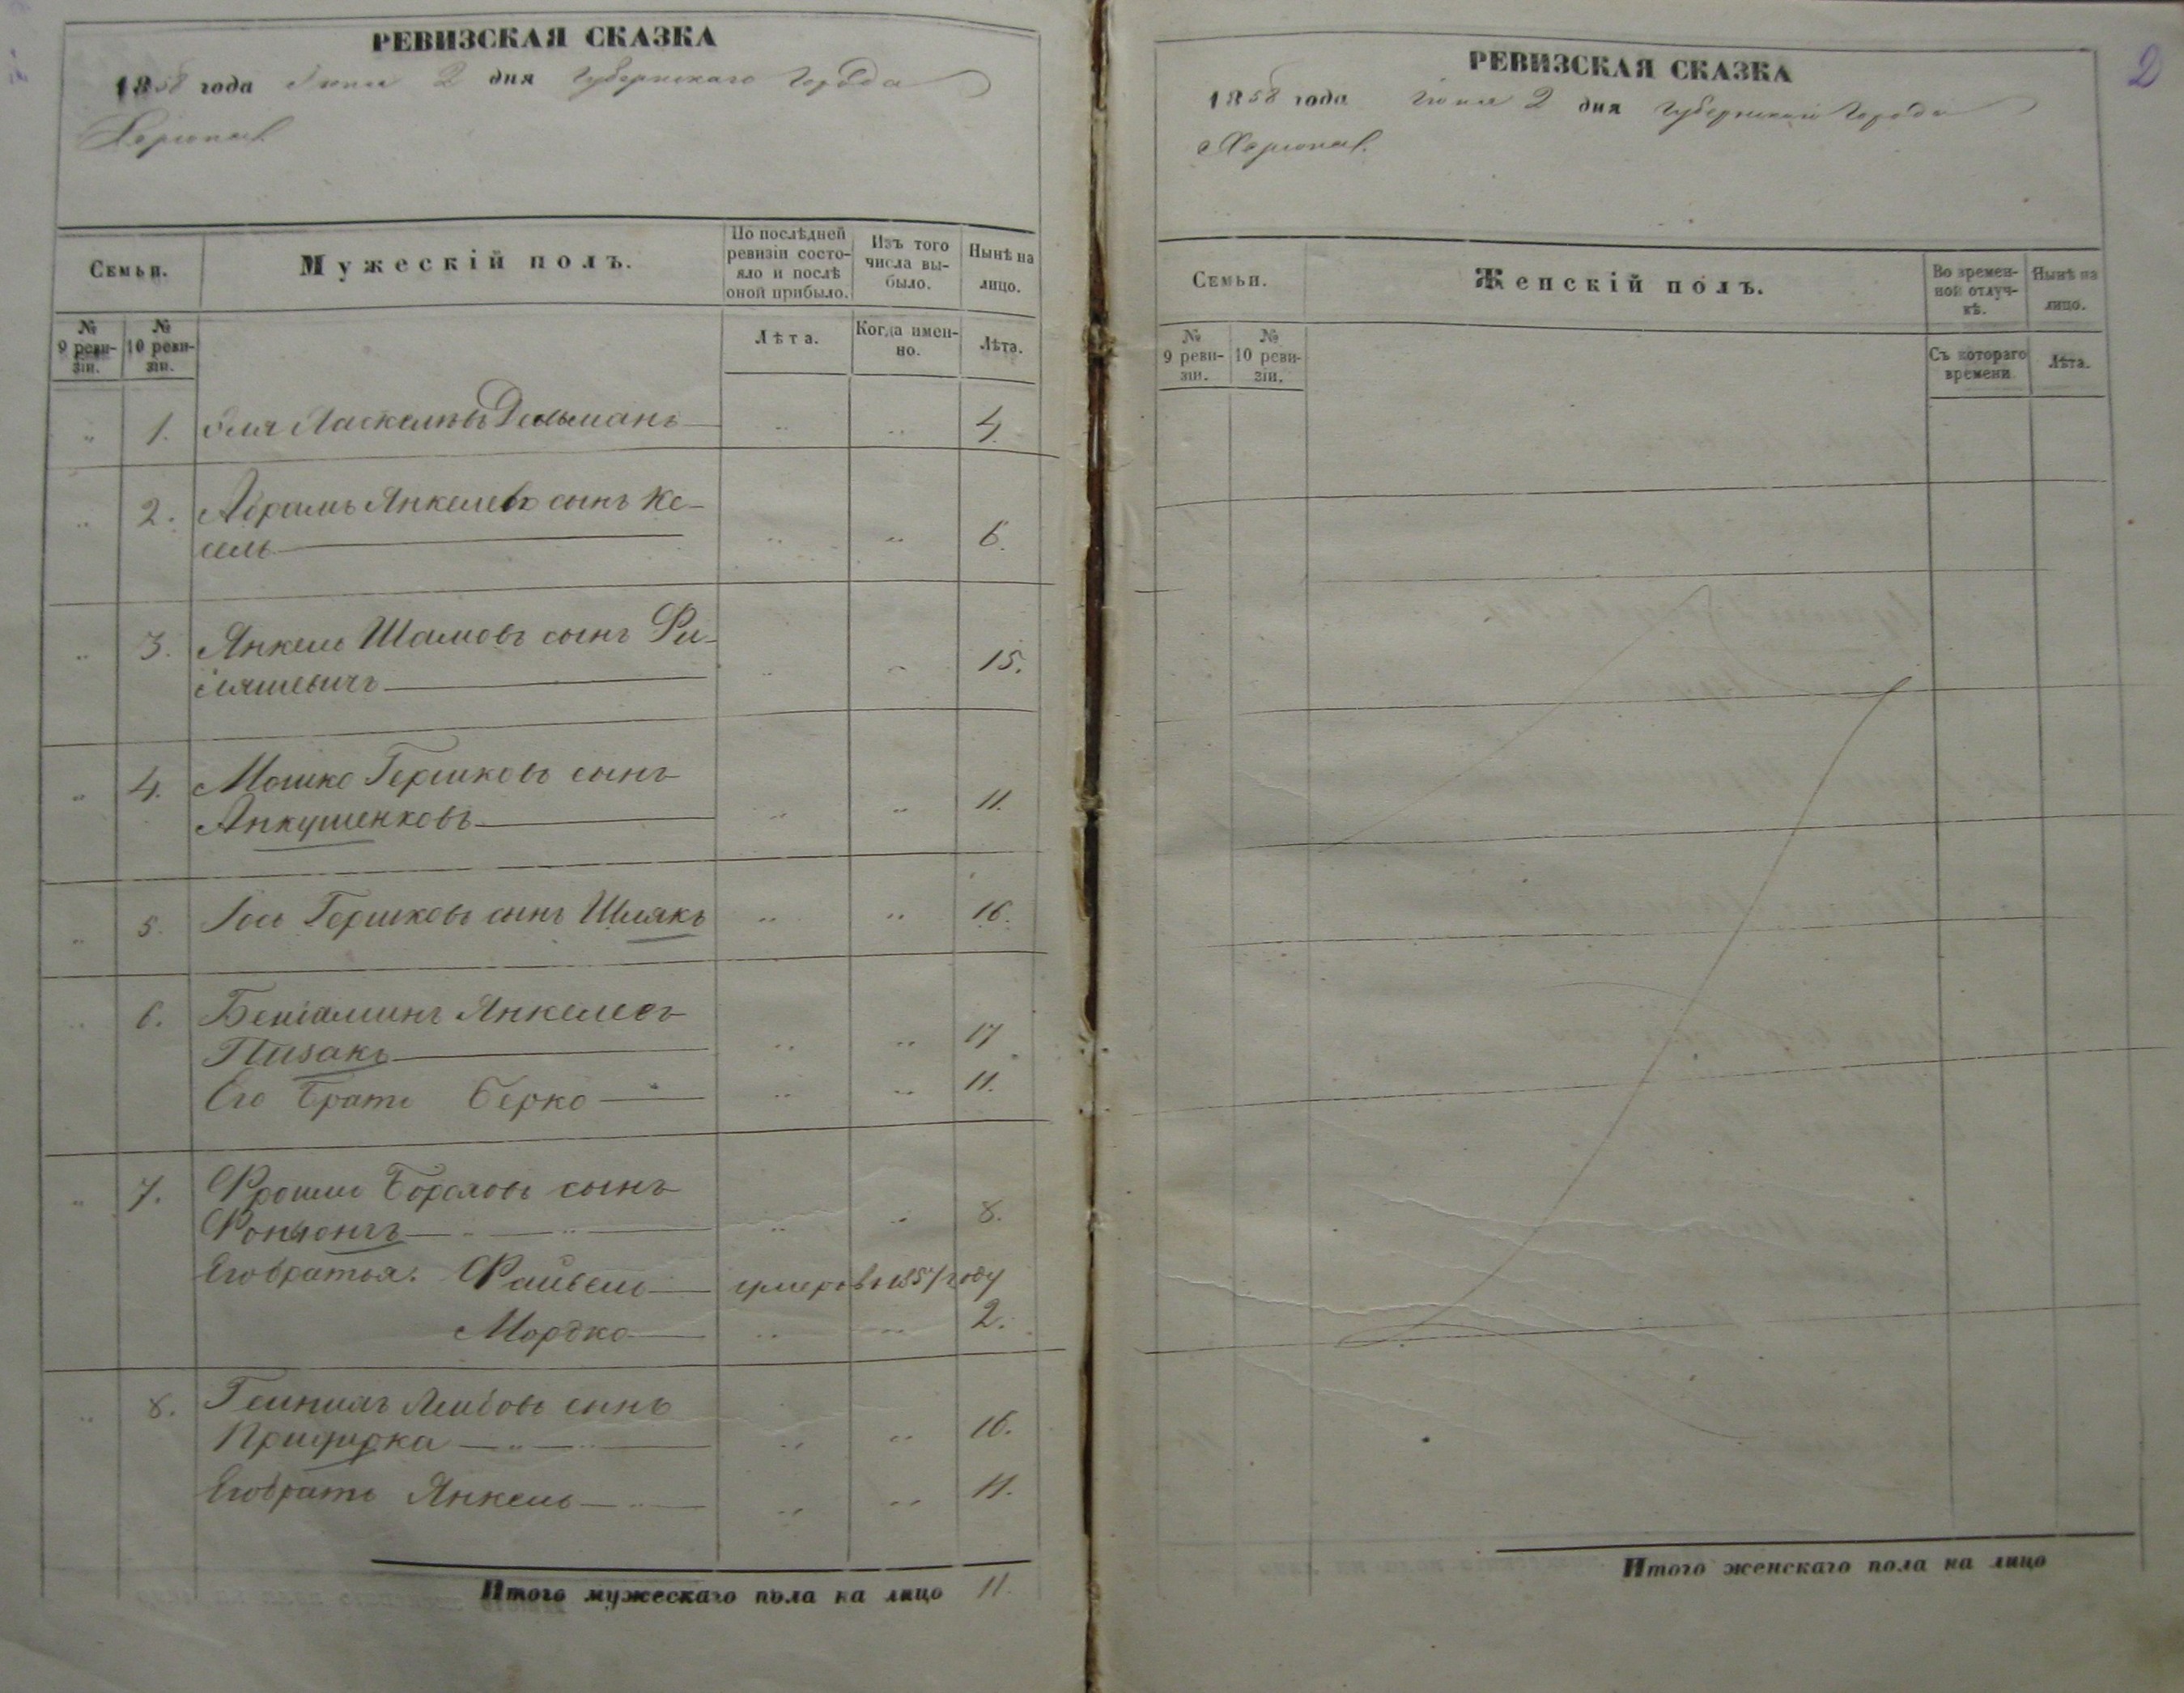 РЕВИЗСКАЯ СКАЗКА
1858 года Июня 2 дня Губернскаго Города
Херсона
Семьи.
Мужескій полъ.
По послѣдней
ревизіи состо-
яло и послѣ
оной прибыло.
Изъ того
числа вы-
было.
Нынѣ на
лицо.
№
9 реви-
зіи.
№
10 реви-
зіи.
Лѣта.
Когда имен-
но.
Лѣта.
„ 1. Хаскелевъ „ „ 4.
„ 2. Абрамъ Янкелевъ сынъ Ке-
сель „ „ 6.
„ 3. Янкель Шамовъ сынъ
„ „ 15.
„ 4. Мошко Гершковъ сынъ
Анкушенковъ „ „ 11.
„ 5. Іось Гершковъ сынъ Шлякъ „ „ 16.
„ 6. Беніаминъ Янкелевъ
Пизакъ „ „ 17
Его Братъ Берко „ „ 11.
„ 7. Фроимъ сынъ
„ „ 8.
Его братья: Файвель умеръ въ 1857 году
Мордко „ „ 2.
„ 8. Лейбовъ сынъ
„ „ 16.
Его братъ Янкель „ „ 11.
Итого мужескаго пола на лицо 11.
2
РЕВИЗСКАЯ СКАЗКА
1858 года Іюня 2 дня Губернскаго Города
Херсона.
Семьи.
Женскій полъ.
Во времен-
ной отлуч-
кѣ.
Нынѣ на
лицо.
№
9 реви-
зіи.
№
10 реви-
зіи.
Съ котораго
времени.
Лѣта.
Итого женскаго пола на лицо